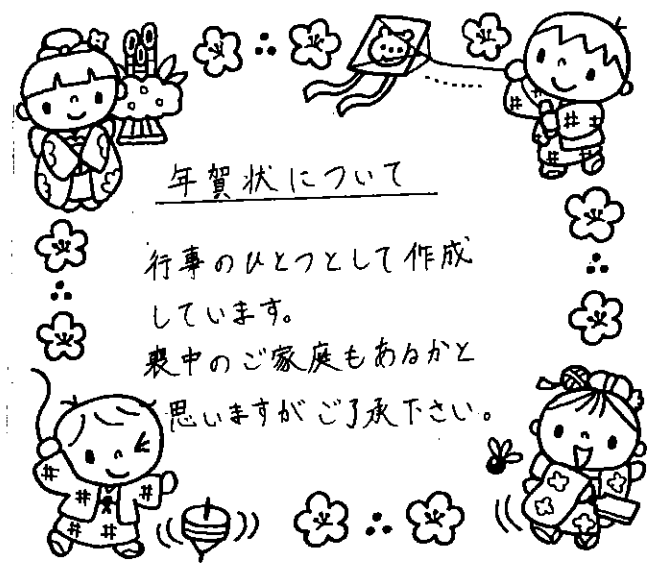 年賀状について
行事のひとつとして作成
しています。
喪中のご家庭もあるかと
思いますがご了承下さい。